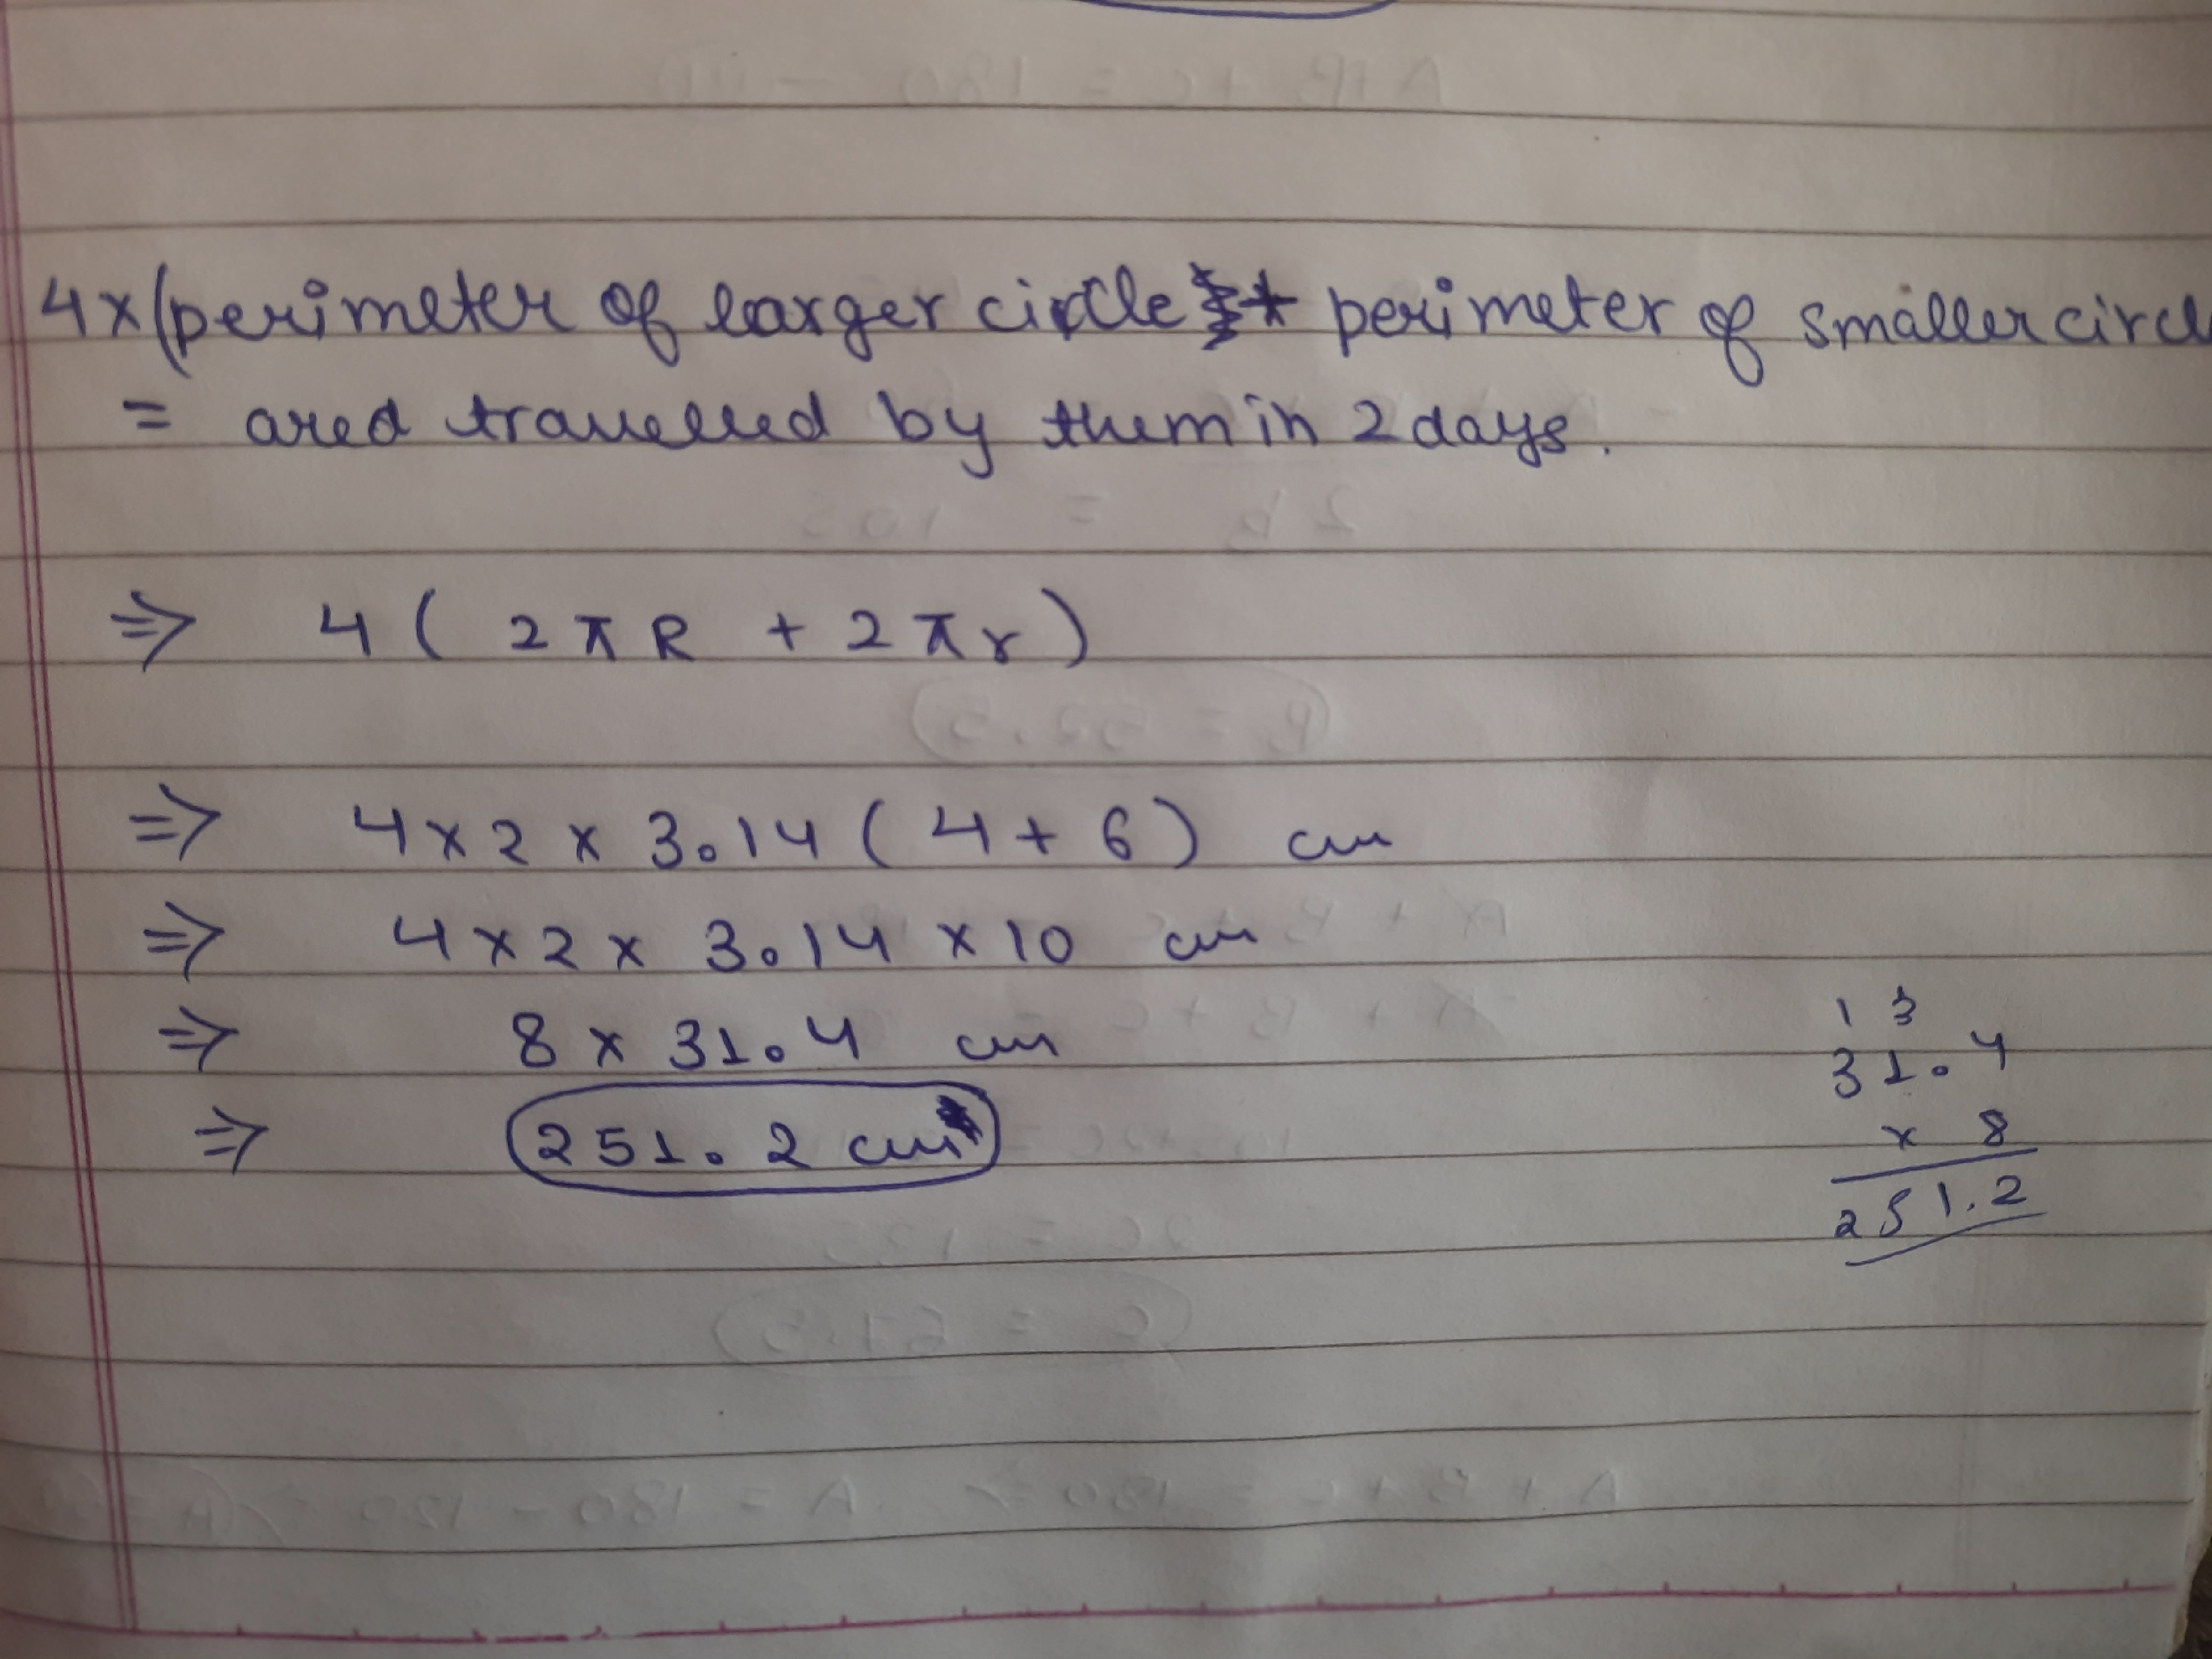 4×(perimeter of larger circle + perimeter of smaller circl
= ared travelled by them in 2 days.
⇒ 4 ( 2πR + 2πr)
⇒ 4×2×3.14 ( 4+6) cm
⇒ 4×2×3.14×10 cm
⇒ 8×31.4 cm
⇒ 251.2 cm
1 3
31.4
× 8
251.2